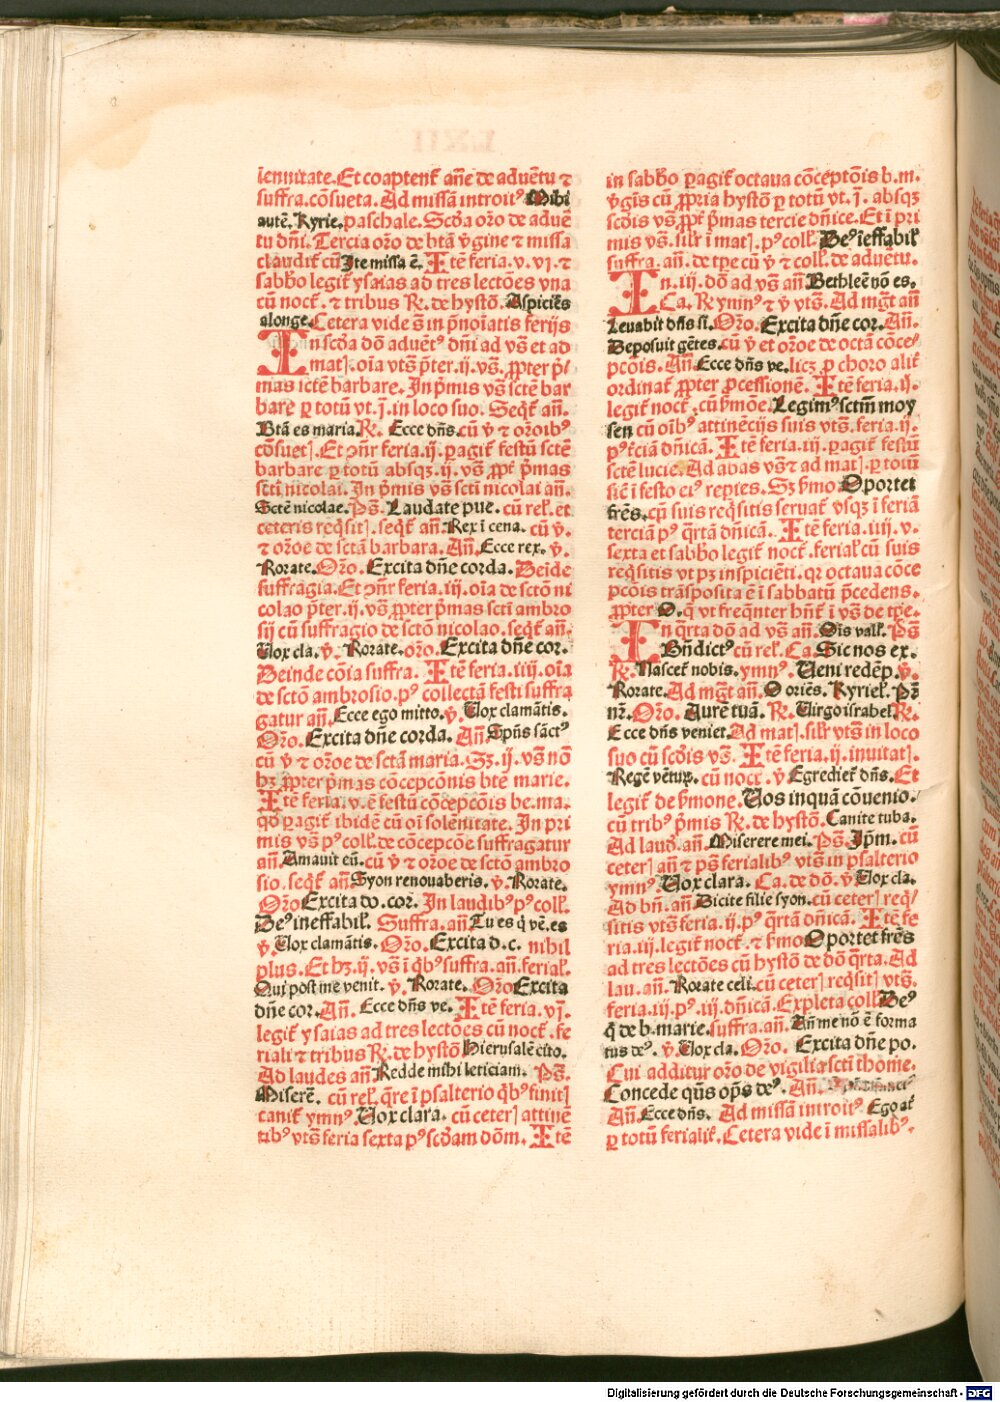 lennitate. Et coaptent᷑ an̄e de aduētu ⁊
suffra. cōsueta. Ad missā introitꝰ Mihi
autē. Kyrie. paschale. Scd̄a or̄o de aduē
tu dn̄i. Tercia or̄o de btā v̄gine ⁊ missa
claudit᷑ cū Ite missa ē. Itē feria. v. vj. ⁊
sabb̄o legit᷑ ysaias ad tres lectōes vna
cū noct᷑. ⁊ tribus R̄. de hystō. Aspiciēs
alonge. Cetera vide s̄ in p̄noīatis ferijs
In scd̄a dō aduētꝰ dn̄i ad vs̄ et ad
matꝭ. oīa vts̄ pter. ij. vs̄. ꝓpter p̄
mas sctē barbare. In p̄mis vs̄ sctē bar
bare ꝑ totū vt. j. in loco suo. Seqt᷑ an̄.
Btā es maria. R̄. Ecce dn̄s. cū v̄ ⁊ or̄oibꝰ
cōsuetꝭ. Et ꝯn̄r feria. ij. ꝑagit᷑ festū sctē
barbare ꝑ totū absqꝫ. ij. vs̄ ꝓpt᷑ p̄mas
scti nicolai. In p̄mis vs̄ scti nicolai an̄.
Sctē nicolae. Ps̄. Laudate pue. cū rel̄. et
ceteris reqsitꝭ. seqt᷑ an̄ Rex ī cena. cū v̄.
⁊ or̄oe de sctā barbara. An̄. Ecce rex. v̄.
Rorate. Or̄o. Excita dn̄e corda. Deide
suffragia. Et ꝯn̄r feria. iij. oīa de sctō ni
colao p̄ter. ij. vs̄ ꝓpter p̄mas scti ambro
sij cū suffragio de sctō nicolao. seqt᷑ an̄.
Vox cla. v̄. Rorate. or̄o. Excita dn̄e cor.
Deinde cōia suffra. Itē feria. iiij. oīa
de sctō ambrosio. pꝰ collectā festi suffra
gatur an̄. Ecce ego mitto. v̄. Vox clamātis.
Or̄o. Excita dn̄e corda. An̄ Spn̄s sāctꝰ
cū v̄ ⁊ or̄oe de sctā maria. Sꝫ. ij. vs̄ nō
hꝫ ꝓpter p̄mas cōcepcōnis btē marie.
Itē feria. v. ē festū cōcepcōis be. ma.
qd̄ ꝑagit᷑ ibidē cū oī solēnitate. In pri
mis vs̄ pꝰ coll̄. de cōcepcōe suffragatur
an̄. Amauit eū. cū v̄ ⁊ or̄oe de sctō ambro
sio. seqt᷑ an̄ Syon renouaberis. v̄. Rorate.
Or̄o Excita do. cor. In laudibꝰ pꝰ coll̄.
Deꝰ ineffabil̄. Suffra. an̄ Tu es q̇ vē. es
v̄. Vox clamātis. Or̄o. Excita d. c. nihil
plus. Et hꝫ. ij. vs̄ ī qbꝰ suffra. an̄. ferial̄.
Qui post me venit. v̄. Rorate. Or̄o Excita
dn̄e cor. An̄. Ecce dn̄s ve. Itē feria. vj.
legit᷑ ysaias ad tres lectōes cū noct᷑. fe
riali ⁊ tribus R̄. de hystō Hierusalē cito.
Ad laudes an̄ Redde mihi leticiam. Ps̄.
Miserē. cū rel̄. qre ī psalterio qbꝰ finitꝭ
canit᷑ ymnꝰ Vox clara. cū ceterꝭ attinē
tibꝰ vts̄ feria sexta pꝰ scd̄am dōm. Itē
in sabb̄o ꝑagit᷑ octaua cōceptōis b. m.
v̄gis cū ꝓpria hystō ꝑ totū vt. j. absqꝫ
scd̄is vs̄ ꝓpt᷑ p̄mas tercie dn̄ice. Et ī pri
mis vs̄. silr̄ ī matꝭ. pꝰ coll̄. Deꝰ īeffabil̄
suffra. an̄. de tp̄e cū v̄ ⁊ coll̄. de aduētu.
In. iij. dō ad vs̄ an̄ Bethleē nō es.
Ca. R̄ ymnꝰ ⁊ v̄ vts̄. Ad mḡt an̄
Leuabit dn̄s si. Or̄o. Excita dn̄e cor. An̄.
Deposuit gētes. cū v̄ et or̄oe de octā cōce
pcōis. An̄ Ecce dn̄s ve. licꝫ ꝑ choro alit᷑
ordinat᷑ ꝓpter ꝓcessionē. Itē feria. ij.
legit᷑ noct᷑. cū s̄mōe. Legimꝰ sctm̄ moy
sen cū oībꝰ attinēcijs suis vts̄. feria. ij.
pꝰ t᷑ciā dn̄icā. Itē feria. iij. ꝑagit᷑ festū
sctē lucie. Ad abas vs̄ ⁊ ad matꝭ. ꝑ totū
sic̄ ī festo eiꝰ repies. Sꝫ s̄mo Oportet
frēs. cū suis reqsitis seruat᷑ vsqꝫ ī feriā
terciā pꝰ qrtā dn̄icā. Itē feria. iiij. v.
sexta et sabb̄o legit᷑ noct᷑. ferial̄ cū suis
reqsitis vt pꝫ inspiciēti. qr octaua cōce
pcōis trāsposita ē ī sabbatū p̄cedens.
ꝓpter O. q̄ vt freqn̄ter hn̄t᷑ ī vs̄ de tp̄e.
In qrta dō ad vs̄ an̄. Ois vall̄. Ps̄
Bn̄dictꝰ cū rel̄. Ca. Sic nos ex.
R̄. Nascet᷑ nobis. ymnꝰ. Veni redēp. v̄.
Rorate. Ad mḡt an̄. O oriēs. Kyriel̄. Pr̄
nr̄. Or̄o. Aurē tuā. R̄. Virgo israhel R̄.
Ecce dn̄s veniet. Ad matꝭ. silr̄ vts̄ in loco
suo cū scd̄is vs̄. Itē feria. ij. inuitatꝭ.
Regē vētuꝝ. cū noct᷑. v̄ Egrediet᷑ dn̄s. Et
legit᷑ de s̄mone. Vos inquā cōuenio.
cū tribꝰ p̄mis R̄. de hystō. Canite tuba.
Ad laud̄. an̄. Miserere mei. Ps̄. Ip̄m. cū
ceterꝭ an̄ ⁊ ps̄ ferialibꝰ vts̄ in psalterio
ymnꝰ. Vox clara. Ca. de dō. v̄. Vox cla.
Ad bn̄. an̄ Dicite filie syon. cū ceterꝭ req
sitis vts̄ feria. ij. pꝰ qrtā dn̄icā. Itē fe
ria. iij. legit᷑ noct᷑. ⁊ s̄mo Oportet frēs
ad tres lectōes cū hystō de dō qrta. Ad
lau. an̄. Rorate celi. cū ceterꝭ reqsitꝭ vts̄.
feria. iij. pꝰ. iij. dn̄icā. Expleta coll̄ Deꝰ
q̇ de b. marie. suffra. an̄. An̄ me nō ē forma
tus deꝰ. v̄. Vox cla. Or̄o. Excita dn̄e po.
Cui additur or̄o de vigilia scti thome.
Concede qs̄ om̄ps deꝰ. An̄.
An̄. Ecce dn̄s. Ad missā introitꝰ. Ego at᷑
ꝑ totū ferialit᷑. Cetera vide ī missalibꝰ.
Digitalisierung gefördert durch die Deutsche Forschungsgemeinschaft - DFG